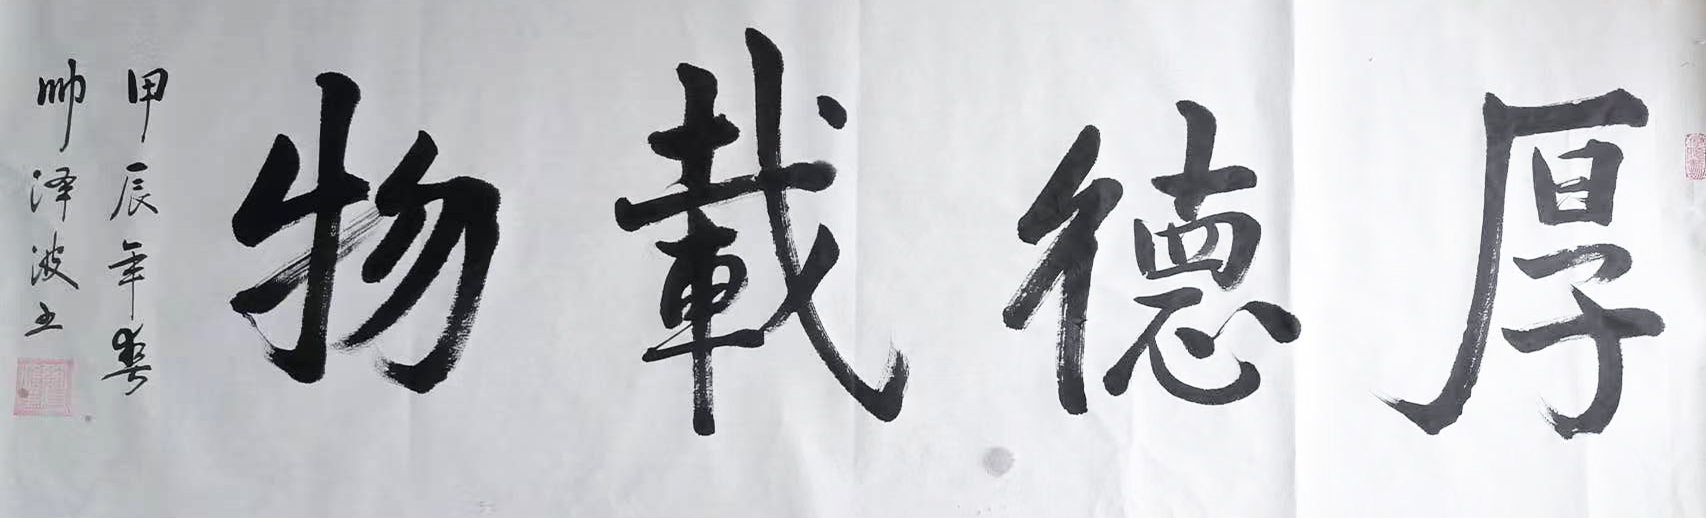 厚德載物
甲辰年
帅泽波